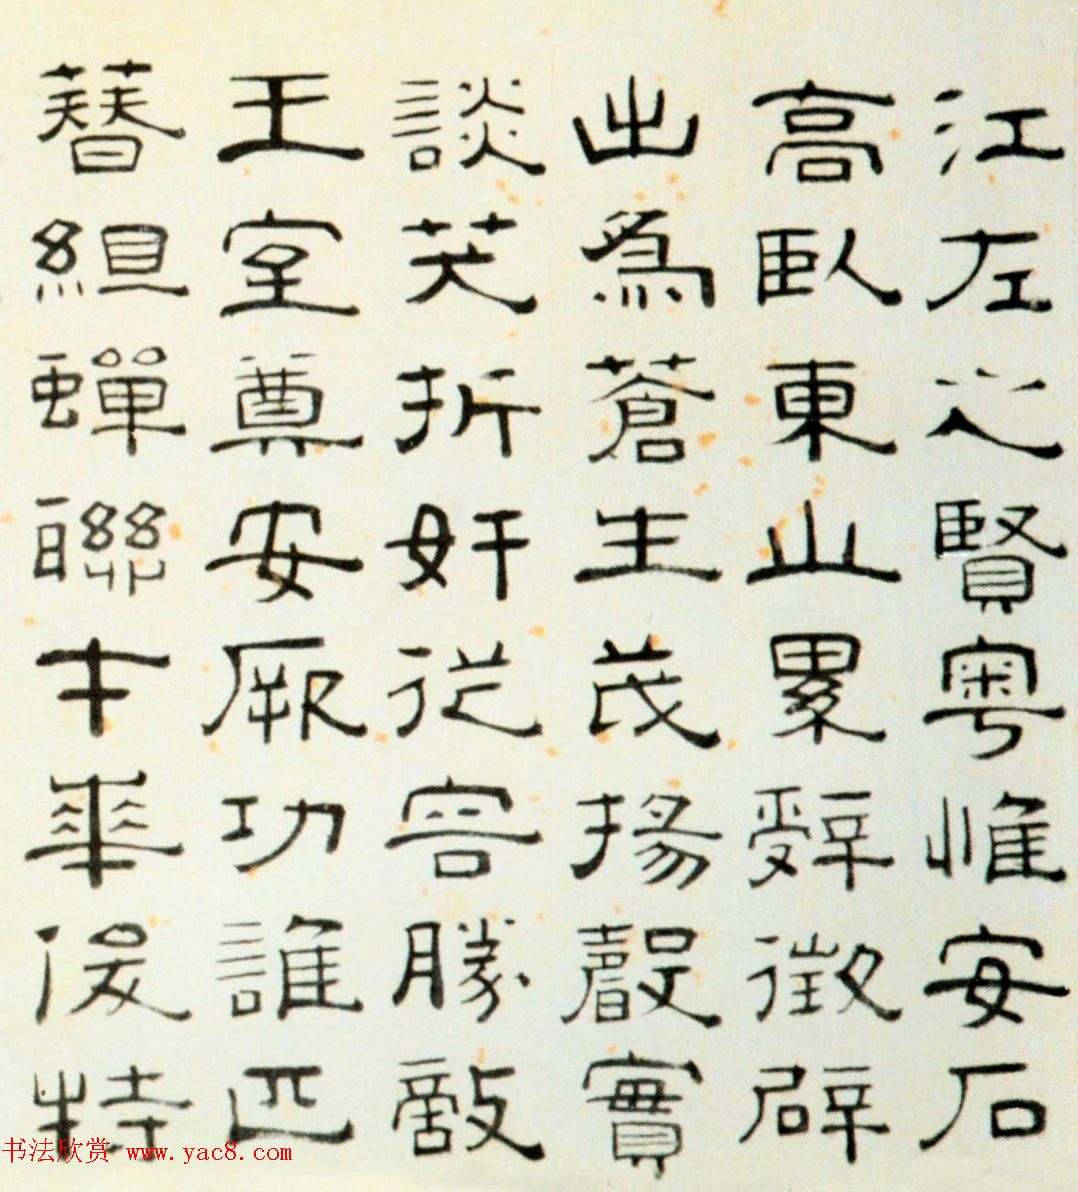 江左之賢粵惟安石
高臥東山累辭徵辟
出爲蒼生茂揚聲實
談笑折奸從容勝敵
王室奠安厥功誰匹
簪組蟬聯才華俊特
书法欣赏 www.yac8.com